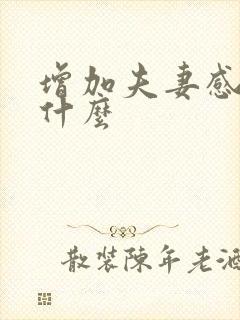 增加夫妻感
什麼
散裝陳年老酒